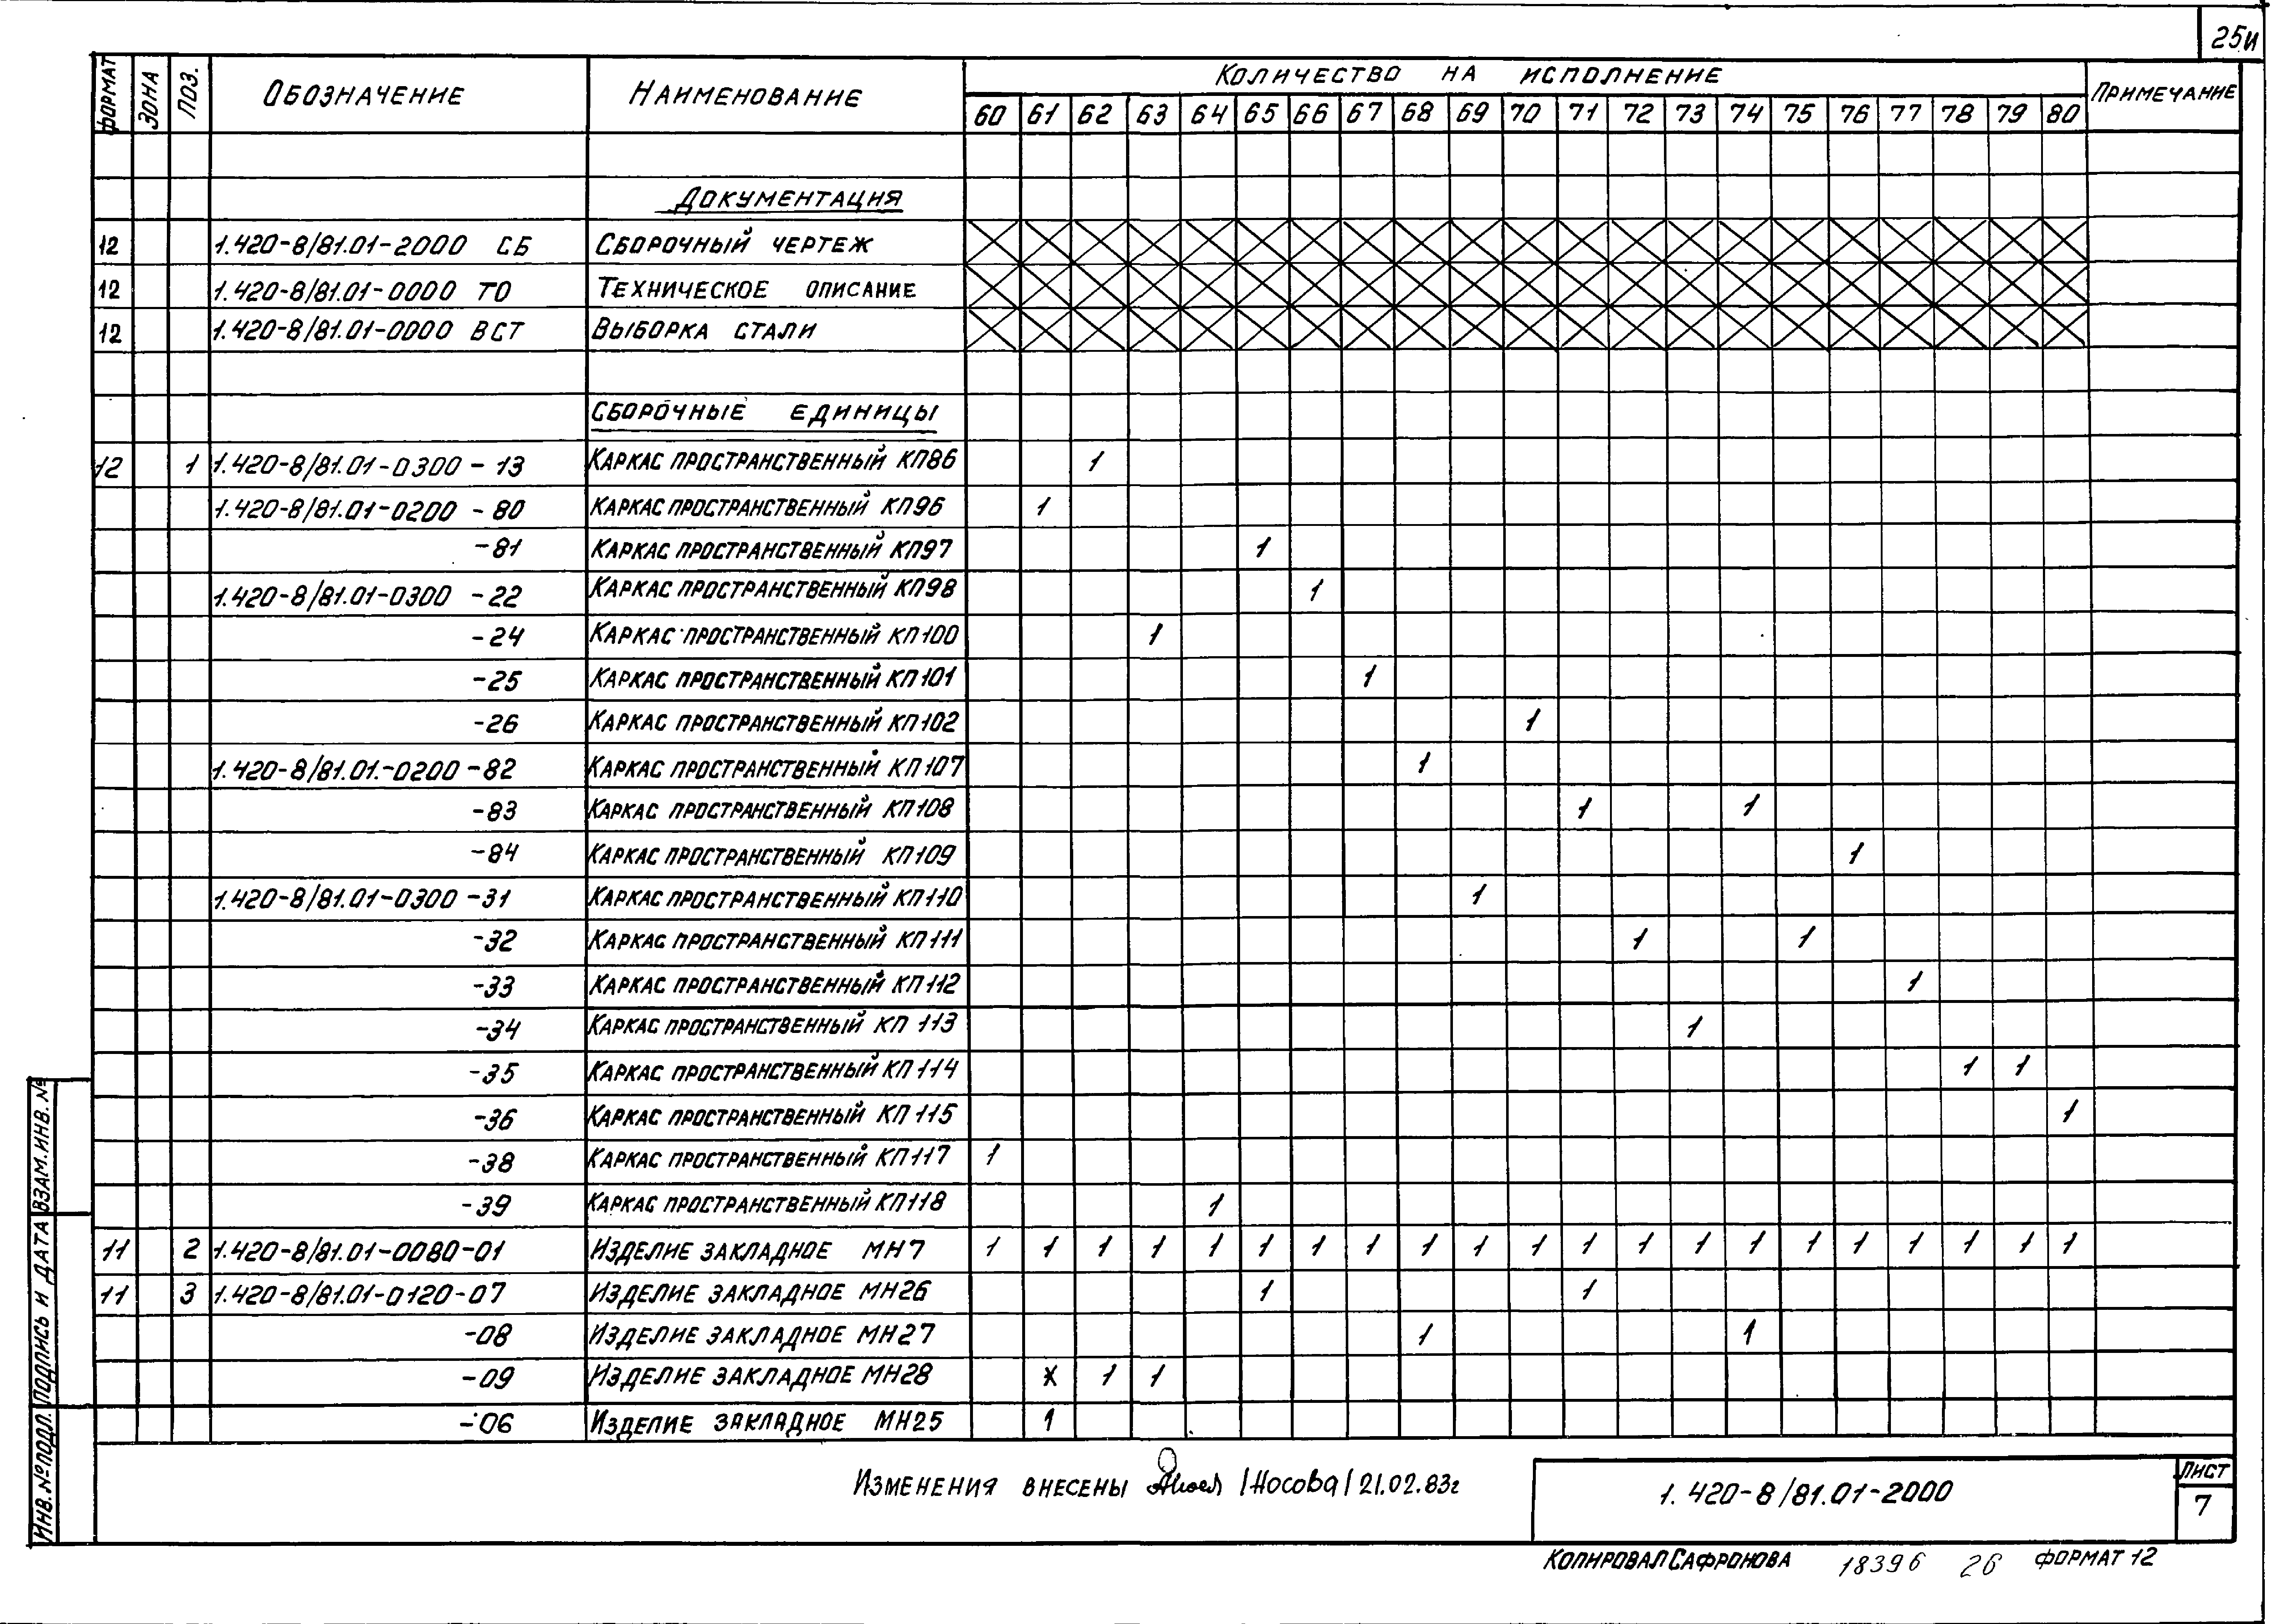 25И
ФОРМАТ ЗОНА ПОЗ. ОБОЗНАЧЕНИЕ НАИМЕНОВАНИЕ КОЛИЧЕСТВО НА ИСПОЛНЕНИЕ ПРИМЕЧАНИЕ
60 61 62 63 64 65 66 67 68 69 70 71 72 73 74 75 76 77 78 79 80
ДОКУМЕНТАЦИЯ
12 1.420-8/81.01-2000 СБ СБОРОЧНЫЙ ЧЕРТЕЖ
12 1.420-8/81.01-0000 ТО ТЕХНИЧЕСКОЕ ОПИСАНИЕ
12 1.420-8/81.01-0000 ВСТ ВЫБОРКА СТАЛИ
СБОРОЧНЫЕ ЕДИНИЦЫ
12 1 1.420-8/81.01-0300-13 КАРКАС ПРОСТРАНСТВЕННЫЙ КП86 1
1.420-8/81.01-0200-80 КАРКАС ПРОСТРАНСТВЕННЫЙ КП96 1
-81 КАРКАС ПРОСТРАНСТВЕННЫЙ КП97 1
1.420-8/81.01-0300-22 КАРКАС ПРОСТРАНСТВЕННЫЙ КП98 1
-24 КАРКАС ПРОСТРАНСТВЕННЫЙ КП100 1
-25 КАРКАС ПРОСТРАНСТВЕННЫЙ КП101 1
-26 КАРКАС ПРОСТРАНСТВЕННЫЙ КП102 1
1.420-8/81.01.-0200-82 КАРКАС ПРОСТРАНСТВЕННЫЙ КП107 1
-83 КАРКАС ПРОСТРАНСТВЕННЫЙ КП108 1 1
-84 КАРКАС ПРОСТРАНСТВЕННЫЙ КП109 1
1.420-8/81.01-0300-31 КАРКАС ПРОСТРАНСТВЕННЫЙ КП110 1
-32 КАРКАС ПРОСТРАНСТВЕННЫЙ КП111 1 1
-33 КАРКАС ПРОСТРАНСТВЕННЫЙ КП112 1
-34 КАРКАС ПРОСТРАНСТВЕННЫЙ КП 113 1
-35 КАРКАС ПРОСТРАНСТВЕННЫЙ КП 114 1 1
-36 КАРКАС ПРОСТРАНСТВЕННЫЙ КП 115 1
-38 КАРКАС ПРОСТРАНСТВЕННЫЙ КП117 1
-39 КАРКАС ПРОСТРАНСТВЕННЫЙ КП118 1
11 2 1.420-8/81.01-0080-01 ИЗДЕЛИЕ ЗАКЛАДНОЕ МН7 1 1 1 1 1 1 1 1 1 1 1 1 1 1 1 1 1 1 1 1 1
11 3 1.420-8/81.01-0120-07 ИЗДЕЛИЕ ЗАКЛАДНОЕ МН26 1 1
-08 ИЗДЕЛИЕ ЗАКЛАДНОЕ МН27 1 1
-09 ИЗДЕЛИЕ ЗАКЛАДНОЕ МН28 Х 1 1
-06 ИЗДЕЛИЕ ЗАКЛАДНОЕ МН25 1
ИНВ.№ПОДЛ. ПОДПИСЬ И ДАТА ВЗАМ.ИНВ.№
ИЗМЕНЕНИЯ ВНЕСЕНЫ /Носова/ 21.02.83г
1.420-8/81.01-2000
ЛИСТ
7
КОПИРОВАЛ САФРОНОВА 18396 26 ФОРМАТ 12